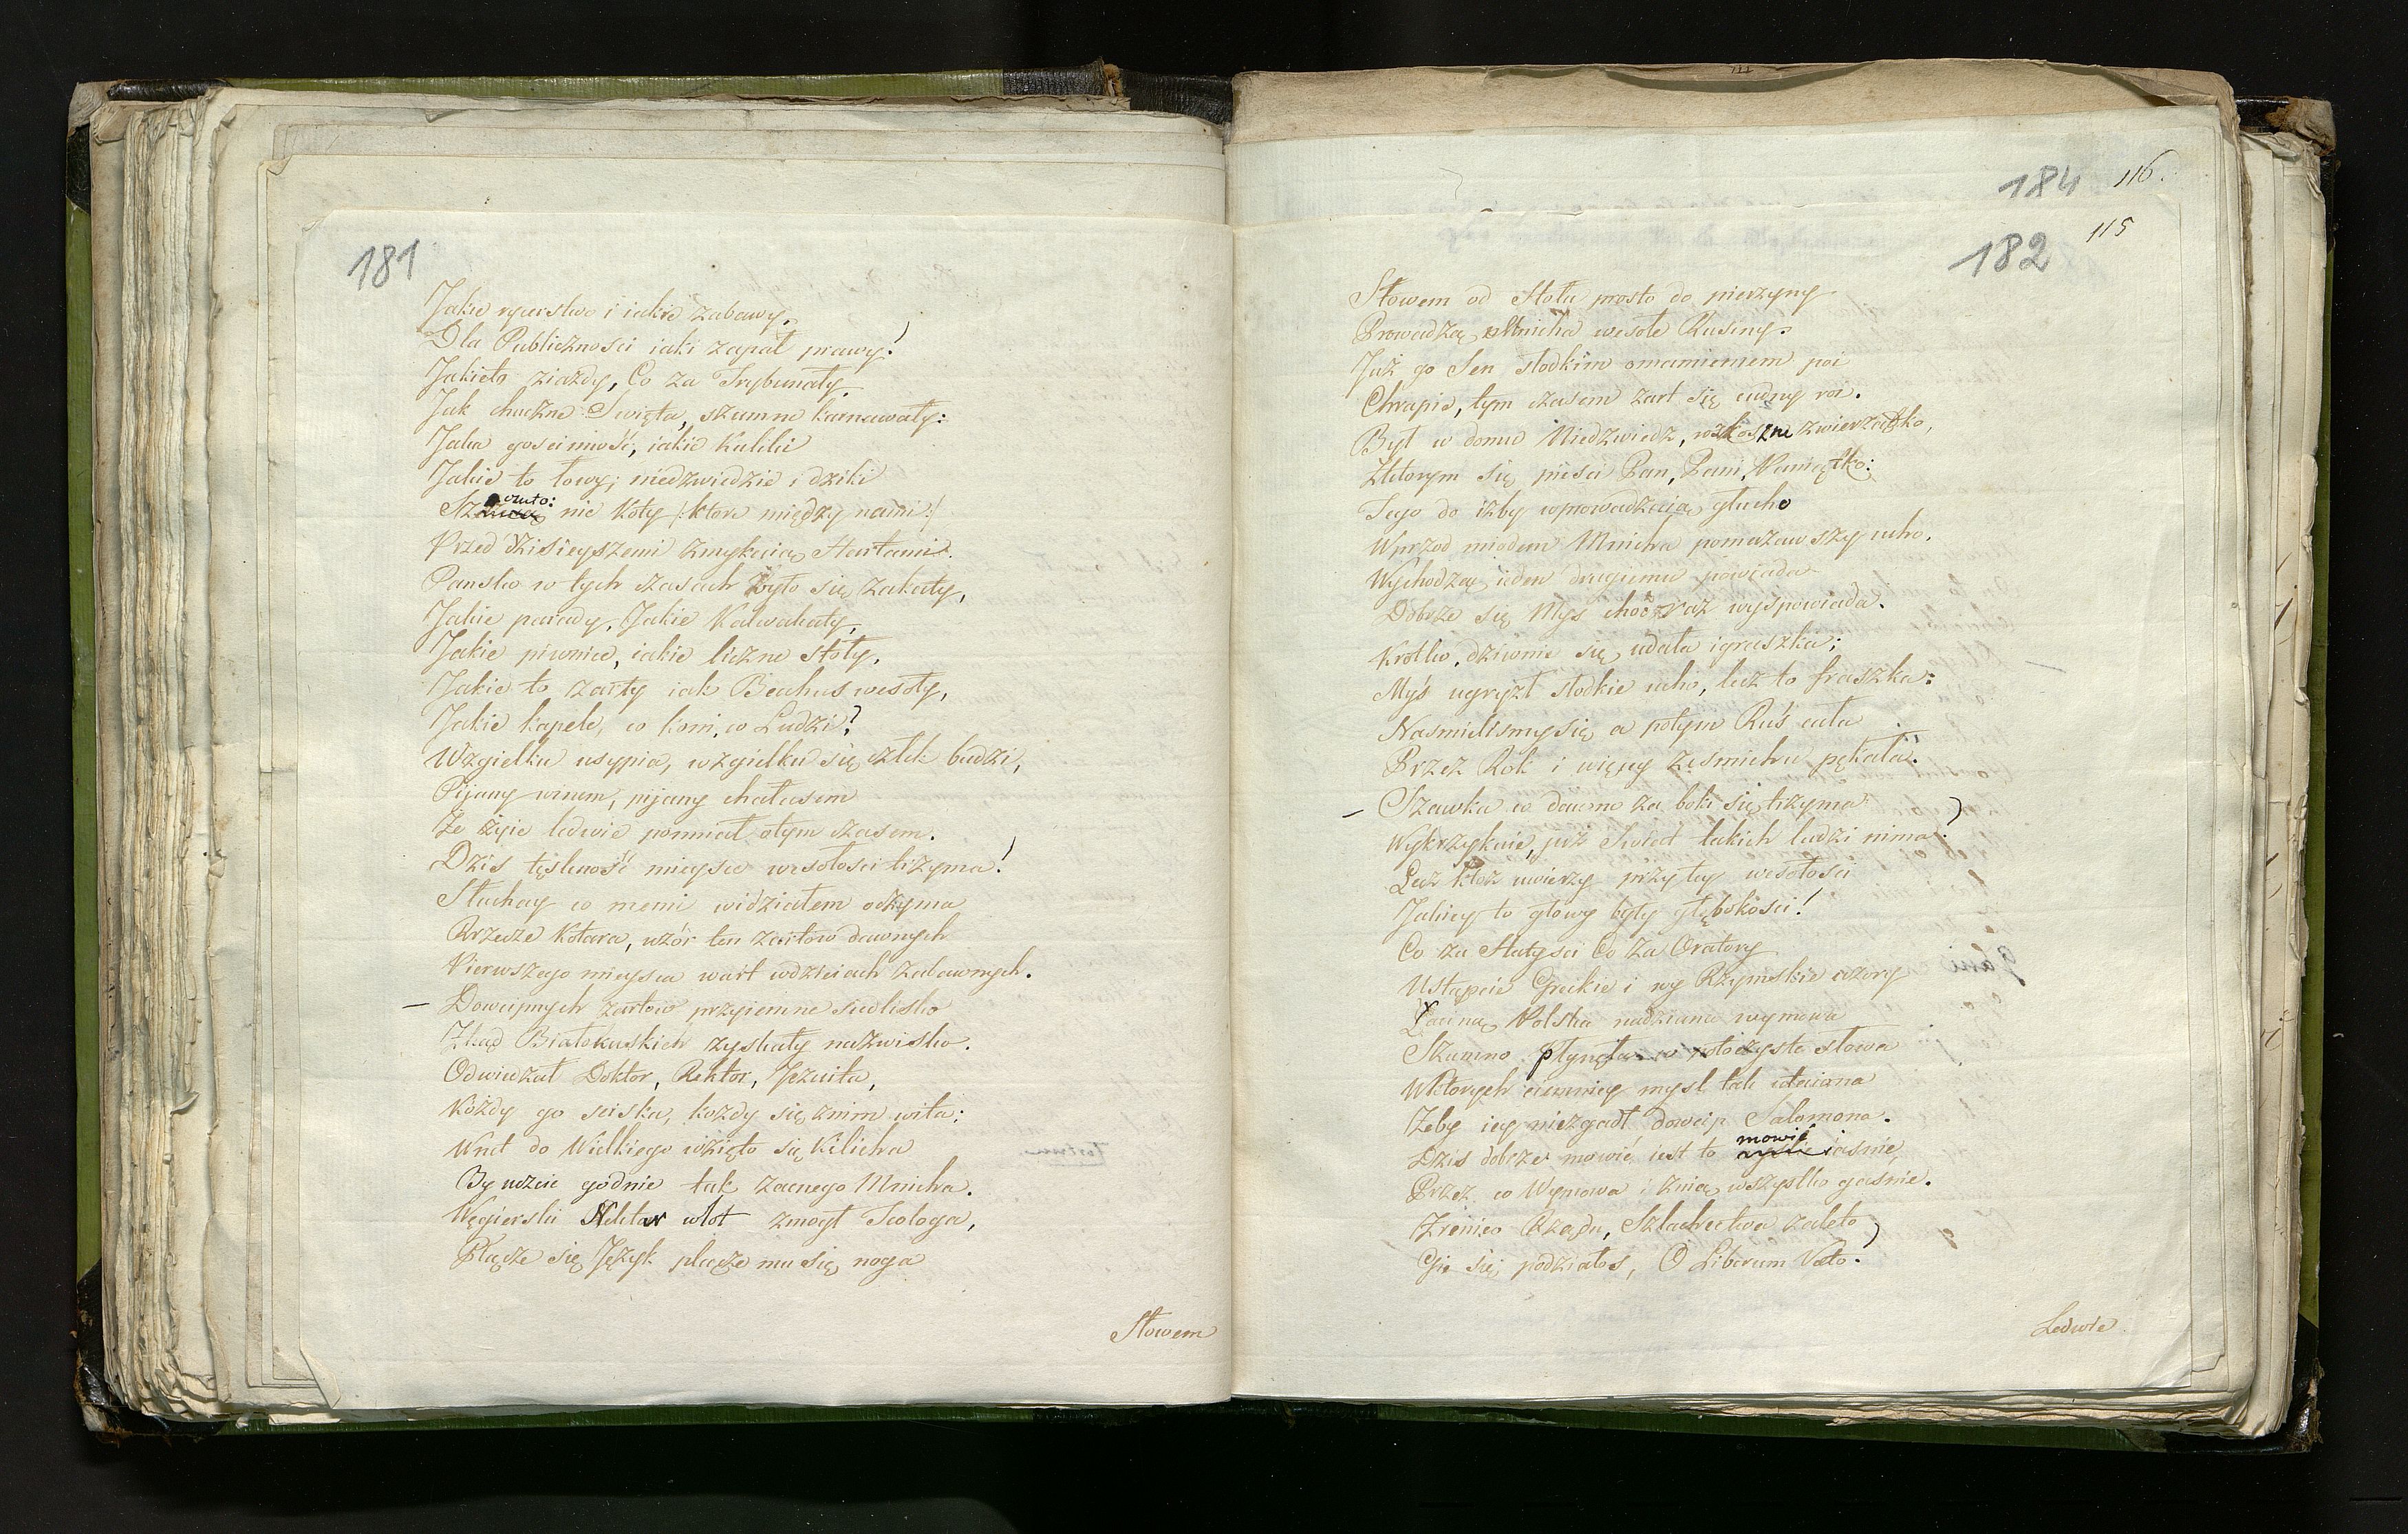 181
Jakie rycerstwo i iakie zabawy,
Dla Publicznosci iaki zapał prawy!
Jakieto ziazdy, Co za Trybunały
Jak huczne Swięta, szumne karnawały:
Jaka goscinność, iakie Kuliki
Jakie to łowy; niedzwiedzie i dziki
Szczuto: nie Koty /: ktore między nami :/
Przed dzisieyszemi zmykaią Hartami.
Pansko w tych czasach żyło się zakąty,
Jakie parady, Jakie Kalwakaty,
Jakie piwnice, iakie liczne stoły,
Jakie to żarty iak Beahus wesoły,
Jakie kapele, co koni, co Ludzi?
Wzgiełku usypia, wzgiełku się człek budzi,
Pijany winem, pijany hałasem
Że żyie ledwie pomniał otym czasem.
Dzis tęskność mieysce wesołosci trzyma!
Słuchay co memi widziałem oczyma
Rzecze Kotara, wzór ten żartów dawnych
Pierwszego mieysca wart wdzieiach zabawnych.
— Dowcipnych żartow przyiemne siedlisko
Zkąd Białokuskich zyskały nazwisko.
Odwiedzał Doktor, Rektor, Jezuita,
Kożdy go sciska, kożdy się znim wita:
Wnet do Wielkiego wzięto się Kielicha
By uczcić godnie tak zacnego Mnicha.
Węgierski Nektar wlot zmogł Teologa,
Plącze się Język plącze mu się noga
Słowem
184 116.
182 115
Słowem od Stołu prosto do pierzyny
Prowadzą Mnicha wesołe Rusiny.
Już go Sen słodkim omamieniem poi
Chrapie, tym czasem żart się cudny roi.
Był w domu Niedzwiedz, rozkoszne zwierzątko,
Zktorym się piesci Pan, Pani, Paniątko:
Tego do izby wprowadzaią głucho
Wprzod miodem Mnicha pomazawszy ucho.
Wychodzą ieden drugiemu powiada
Dobrze się Mys choć raz wyspowiada.
Krotko, dziwnie się udała igraszka;
Myś ugryzł słodkie ucho, lecz to fraszka:
Nasmielismy się a potym Ruś cała
Przez Rok i więcey ześmiechu pękała.
— Szawka co dawno za boki się trzyma
Wykrzyknie, już Swiat takich ludzi nima!
Lecz ktoż uwierzy przy tey wesołości
Jakiey to głowy były głębokości!
Co za Statysci Co za Oratory
Ustąpcie Greckie i wy Rzymskie wzory
Łaciną Polska nadziana wymowa
Szumno płynęła w potoczyste słowa
Wktorych ciemniey mysl tak utaiona
Żeby iey niezgadł dowcip Salomona.
Dzis dobrze mowić iest to mowić iasnie,
Przez co Wymowa i znią wszystko gasnie.
Zrenico Rządu, Szlachectwa zaleto
Gie się podziałos, O Liberum Veto!
Ledwie